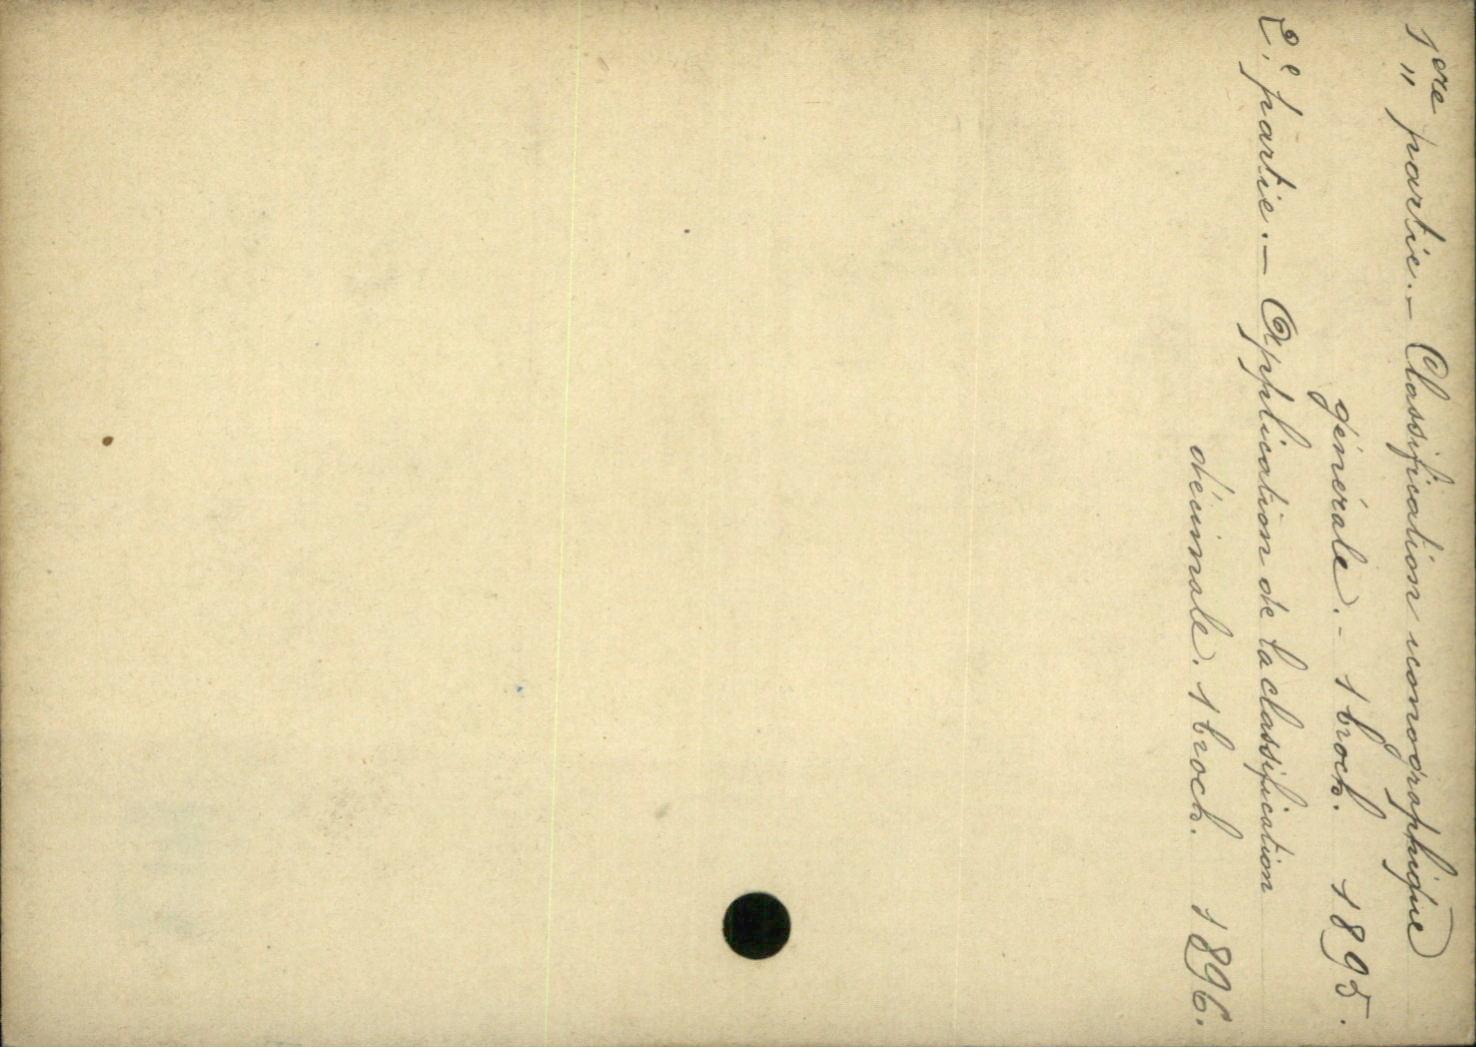 1ère partie. - Classification iconographique
générale. - 1 broch. 1895.
2e partie. - Application de la classification
décimale. 1 broch. 1896.